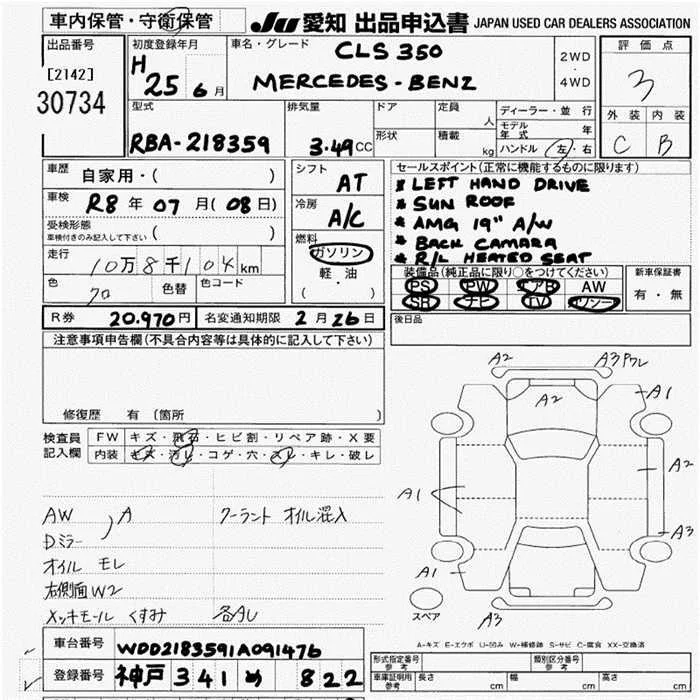 車内保管・守衛保管
JU 愛知 出品申込書 JAPAN USED CAR DEALERS ASSOCIATION
出品番号
[2142]
30734
初度登録年月
H 25 6 月
車名・グレード
CLS 350
MERCEDES-BENZ
2WD
・
4WD
評価点
3
外装 内装
C B
型式
RBA-218359
排気量
3.49 CC
ドア
定員
人
形状
積載
kg
ディーラー・並行
モデル年式 年
ハンドル 左・右
車歴 自家用・( )
車検 R8 年 07 月 (08 日)
受検形態
車検付きのみ記入して下さい ( )
走行 10万8千104 km
色 クロ
色替
色コード
シフト
AT
冷房
A/C
燃料
ガソリン
軽・油
( )
セールスポイント(正常に機能するものに限ります)
* LEFT HAND DRIVE
* SUN ROOF
* AMG 19" A/W
* BACK CAMARA
* R/L HEATED SEAT
装備品(純正品に限り○をつけてください)
PS PW エアB AW
SR ナビ TV
新車保証書
有・無
後日品
R券 20.970円
名変通知期限 2 月 26 日
注意事項申告欄(不具合内容等は具体的に記入して下さい)
修復歴 有 (箇所 )
検査員記入欄
FW キズ・飛石・ヒビ割・リペア跡・X要
内装 キズ・汚レ・コゲ・穴・スレ・キレ・破レ
AW
Dミラー
A
クーラント オイル混入
オイル モレ
右側面 W2
メッキモール くすみ
A2
A3 ワレ
A1
A2
A2
A1
A3
A1
A3
スペア
A-キズ E-エクボ U-凹み W-補修跡 S-サビ C-腐食 XX-交換済
車台番号 WDD2183591A091476
登録番号 神戸 341 め 822
形式指定番号
参考
類別区分番号
参考
車庫証明用
参考
長さ cm
幅 cm
高さ cm